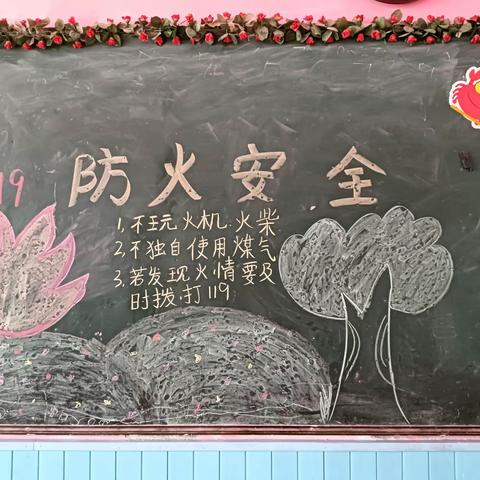 19
防火安全
1,不玩火机.火柴
2.不独自使用煤气
3.若发现火情要及
时拨打119